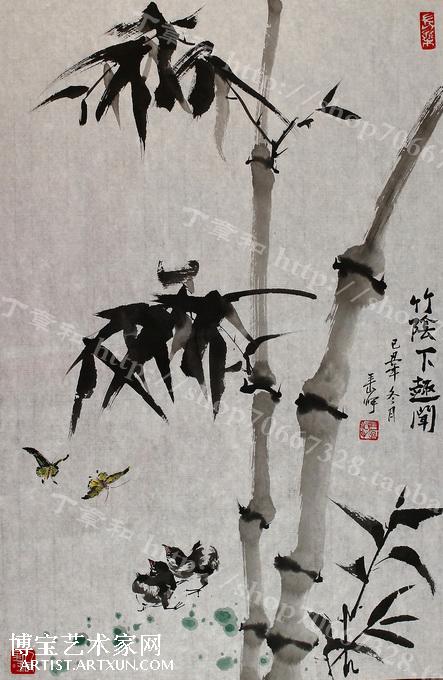 長樂
竹蔭下趣聞
己丑年冬月
丁章和 http://shop70667328.taobao
博宝艺术家网
ARTIST.ARTXUN.COM